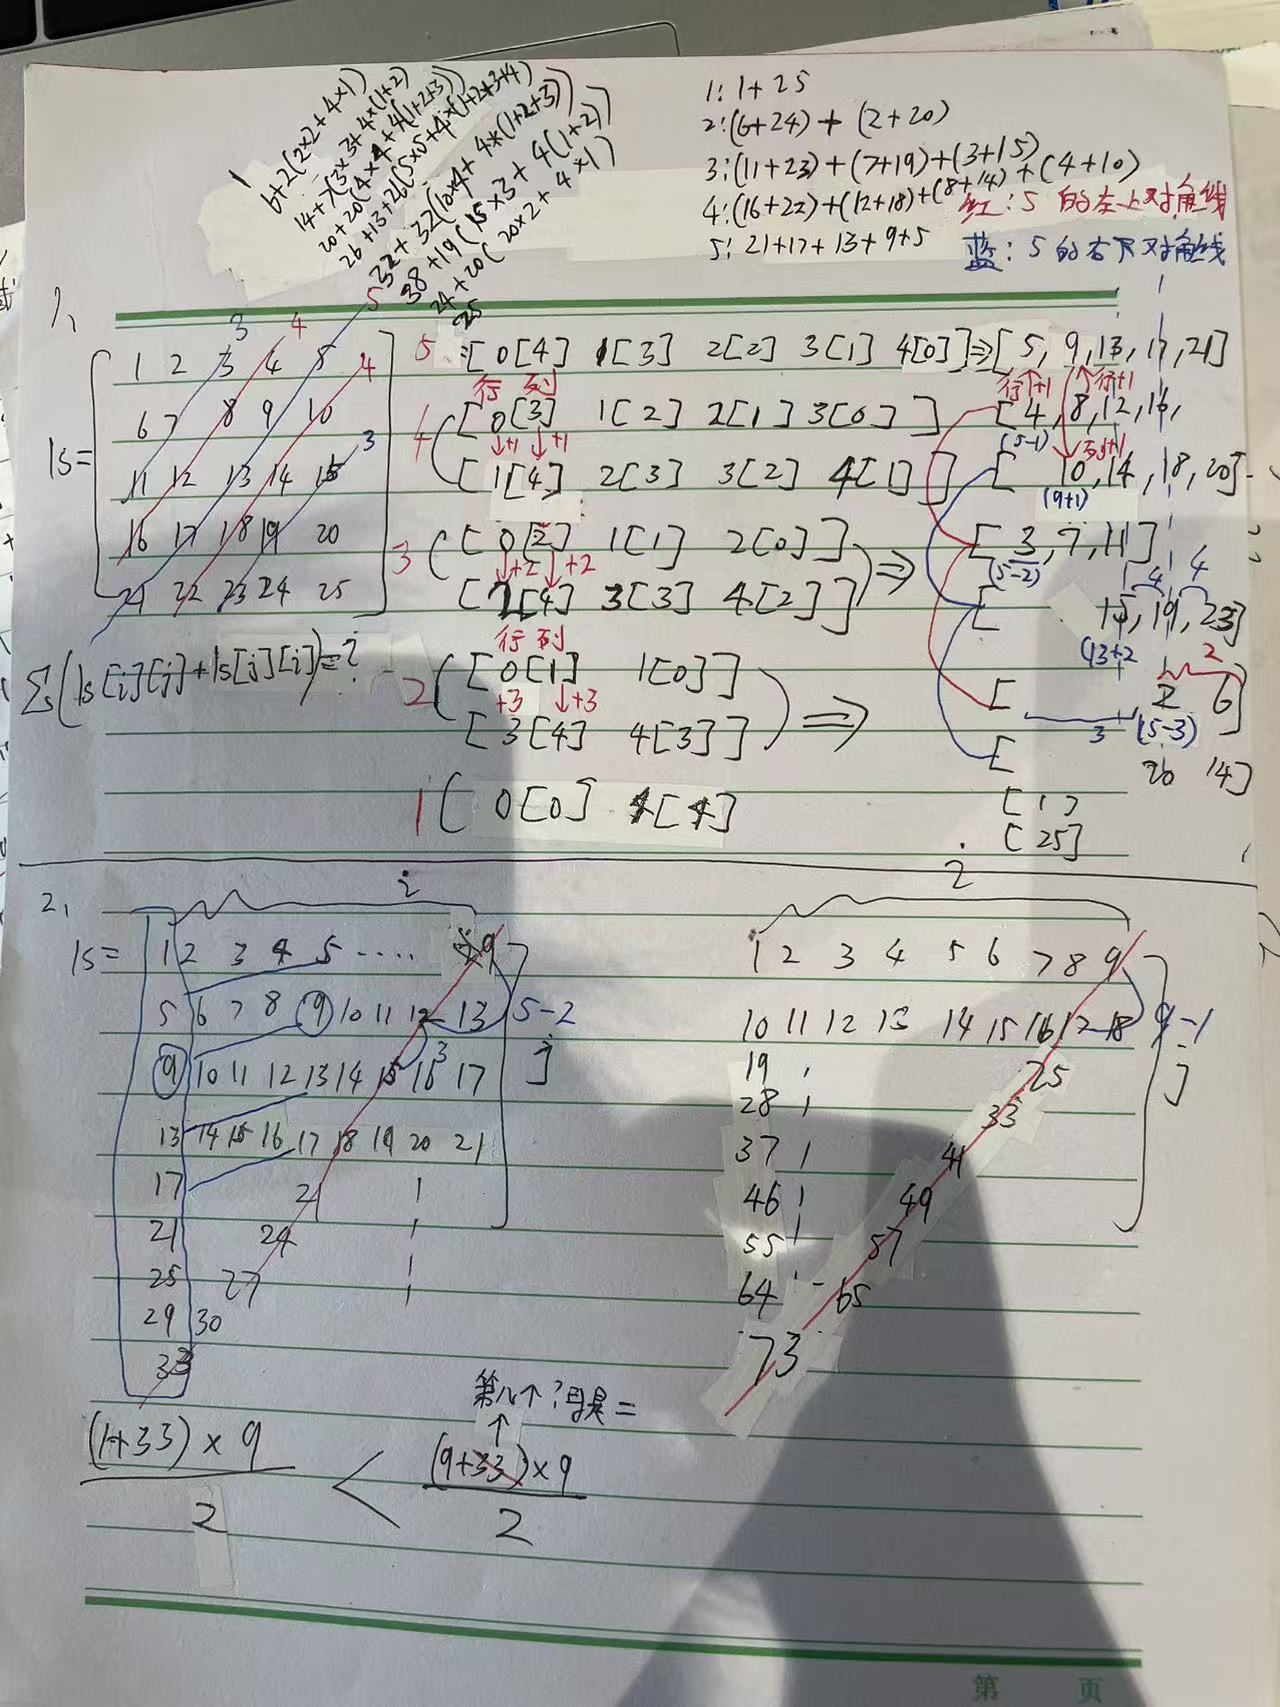 1
6+2(2×2+4×1)
14+7(3×3+4×(1+2)
20+20(4×4+4(1+2+3))
26+13+26(5×5+4×(1+2+3+4)
32+32(10×4+4×(1+2+3))
38+19(15×3+4(1+2))
24+20(20×2+4×1)
25
1: 1+25
2:(6+24)+(2+20)
3:(11+23)+(7+19)+(3+15)
4:(16+22)+(12+18)+(8+14)+(4+10)
5: 21+17+13+9+5
红: 5的左上对角线
蓝: 5的右下对角线
1、
3 4 5
ls=
1 2 3 4 5 4
6 7 8 9 10
3
11 12 13 14 15
16 17 18 19 20
21 22 23 24 25
∑(ls[i][j]+ls[j][i])=?
5 :=[0[4] 1[3] 2[2] 3[1] 4[0]]⇒[5,9,13,17,21]
行 列 行+1 行+1
4 [0[3] 1[2] 2[1] 3[0]] [4,8,12,16,
↓+1 ↓+1 (5-1) 列+1
[1[4] 2[3] 3[2] 4[1]] [10,14,18,20]
(9+1)
3 [0[2] 1[1] 2[0]] ⇒ [3,7,11]
↓+2 ↓+2 (5-2)
4 4
[2[4] 3[3] 4[2]] [15,19,23]
行 列 (13+2
2
2 [0[1] 1[0]] ⇒ [2 6]
+3 ↓+3 3 (5-3)
[3[4] 4[3]] [20 14]
1 [0[0] 4[4]
[1]
[25]
2、
i
ls= 1 2 3 4 5 ····· 9
5 6 7 8 9 10 11 12 13 5-2
3
9 10 11 12 13 14 15 16 17 j
13 14 15 16 17 18 19 20 21
17 21
21 24
25 27
29 30
33
(1+33)×9
2
<
第几个?可是=
↑
(9+33)×9
2
i
1 2 3 4 5 6 7 8 9
10 11 12 13 14 15 16 17 18 9-1
19 25 j
28 33
37 41
46 49
55 57
64 65
73
第 页